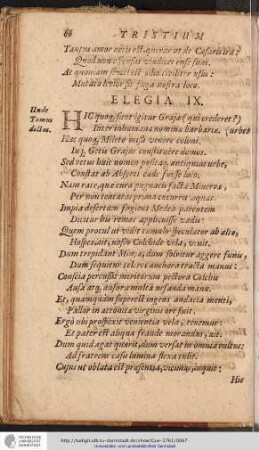 66 TRISTIUM
Tantus amor necis est, querar ut de Cæsaris ira?
Quod non offensas vindicet ense suas.
At quoniam semel est odio civiliter usus:
Mutato levior sit fuga nostra loco.
ELEGIA IX.
Unde Tomus dictus.
HIC quoq; sunt igitur Grajæ (quis crederet?) urbes
Inter inhumanæ nomina barbariæ.
Huc quoq, Mileto missi venere coloni,
Inq; Getis Grajas constituere domos.
Sed vetus huic nomen positaq; antiquius urbe,
Constat ab Absyrti cæde fuisse loco.
Nam rate, quæ cura pugnacis facta Minervæ,
Per non tentatas prima cucurrit aquas:
Impia desertum fugiens Medea parentem
Dicitur his remos applicuisse vadis.
Quem procul ut vidit tumulo speculator ab alto,
Hospes, ait, nosco Colchide vela, venit.
Dum trepidant Minyæ, dum solvitur aggere funis,
Dum sequitur celeres anchora tracta manus:
Conscia percussit meritorum pectora Colchis
Ausa atq, ausura multa nefanda manu.
Et, quamquam superest ingens audacia menti,
Pallor in attonitæ virginis ore fuit.
Ergò ubi prospexit venientia vela, tenemur:
Et pater est aliqua fraude morandus, ait.
Dum quid agat quærit, dum versat in omnia vultus:
Ad fratrem casu lumina flexa tulit.
Cujus ut oblata est præsentia, vicimus, inquit:
Hic
http://tudigit.ulb.tu-darmstadt.de/show/Gue-3761/0067
Universitäts- und Landesbibliothek Darmstadt